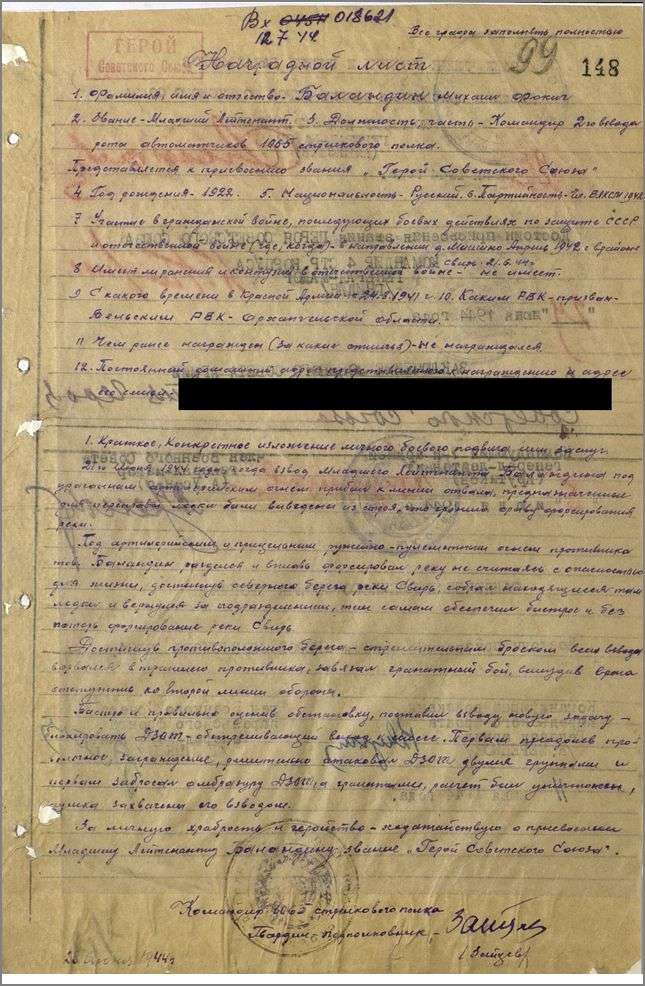 Вх 0451 018621
12 7 44
Все графы заполнять полностью
ГЕРОЙ
Советского Союза
99
148
Наградной лист
1. Фамилия, имя и отчество - Баландин Михаил
2. Звание - Младший Лейтенант. 3. Должность, часть - Командир 2го взвода
рота автоматчиков 1065 стрелкового полка.
Представляется к присвоению звания „Герой Советского Союза"
4 Год рождения - 1922. 5. Национальность - Русский. 6. Партийность - Чл. ВЛКСМ 1942
7 Участие в гражданской войне, последующих боевых действиях по защите СССР
и отечественной войне (где, когда) - направлении д. Апрель 1942 г.
Свирь 21.6.44г
8 Имеет ли ранения и контузии в отечественной войне - не имеет.
9 С какого времени в Красной Армии - 1941 г. 10. Каким РВК - призван -
Вельским РВК - Архангельской области.
11 Чем ранее награжден (за какие отличия) - Не награждался
12. Постоянный домашний адрес представляемого к награждению и адрес
его семьи
1. Краткое, конкретное изложение личного боевого подвига или заслуг.
21го Июня 1944 года, когда взвод Младшего Лейтенанта Баландина под
ураганным артиллерийским огнем прибыл к линии отвала, предназначенные
лодки были выведены из строя, что срыву форсирования
реки.
Под артиллерийским и прицельным ружейно-пулеметным огнем противника
тов. Баландин разделся и вплавь форсировал реку не считаясь с опасностью
для жизни, достигнув северного берега реки Свирь, собрал находящиеся там
лодки и вернулся за подразделением, тем самым обеспечил быстрое и без
потерь форсирование реки Свирь
Достигнув противоположного берега - стремительным броском всего взвода
ворвался в траншею противника, завязал гранатный бой, вынудив врага
отступить ко второй линии обороны.
Быстро и правильно оценив обстановку, поставил взводу новую задачу -
блокировать ДЗОТ - обстреливающий. Первым преодолев про-
волочное заграждение, решительно атаковал ДЗОТ двумя группами и
первым забросал амбразуру ДЗОТ,а гранатами, расчет был уничтожен,
пушка захвачена его взводом.
За личную храбрость и геройство - ходатайствую о присвоении
Младшему Лейтенанту Баландину звание „Герой Советского Союза".
Командир 1065 стрелкового полка
Гвардии - Подполковник - Зайцев
(Зайцев)
1944г